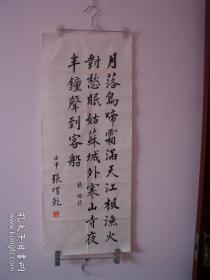 月落烏啼霜滿天江楓漁火
對愁眠姑蘇城外寒山寺夜
半鐘聲到客船
張繼詩
壬申張堉乾